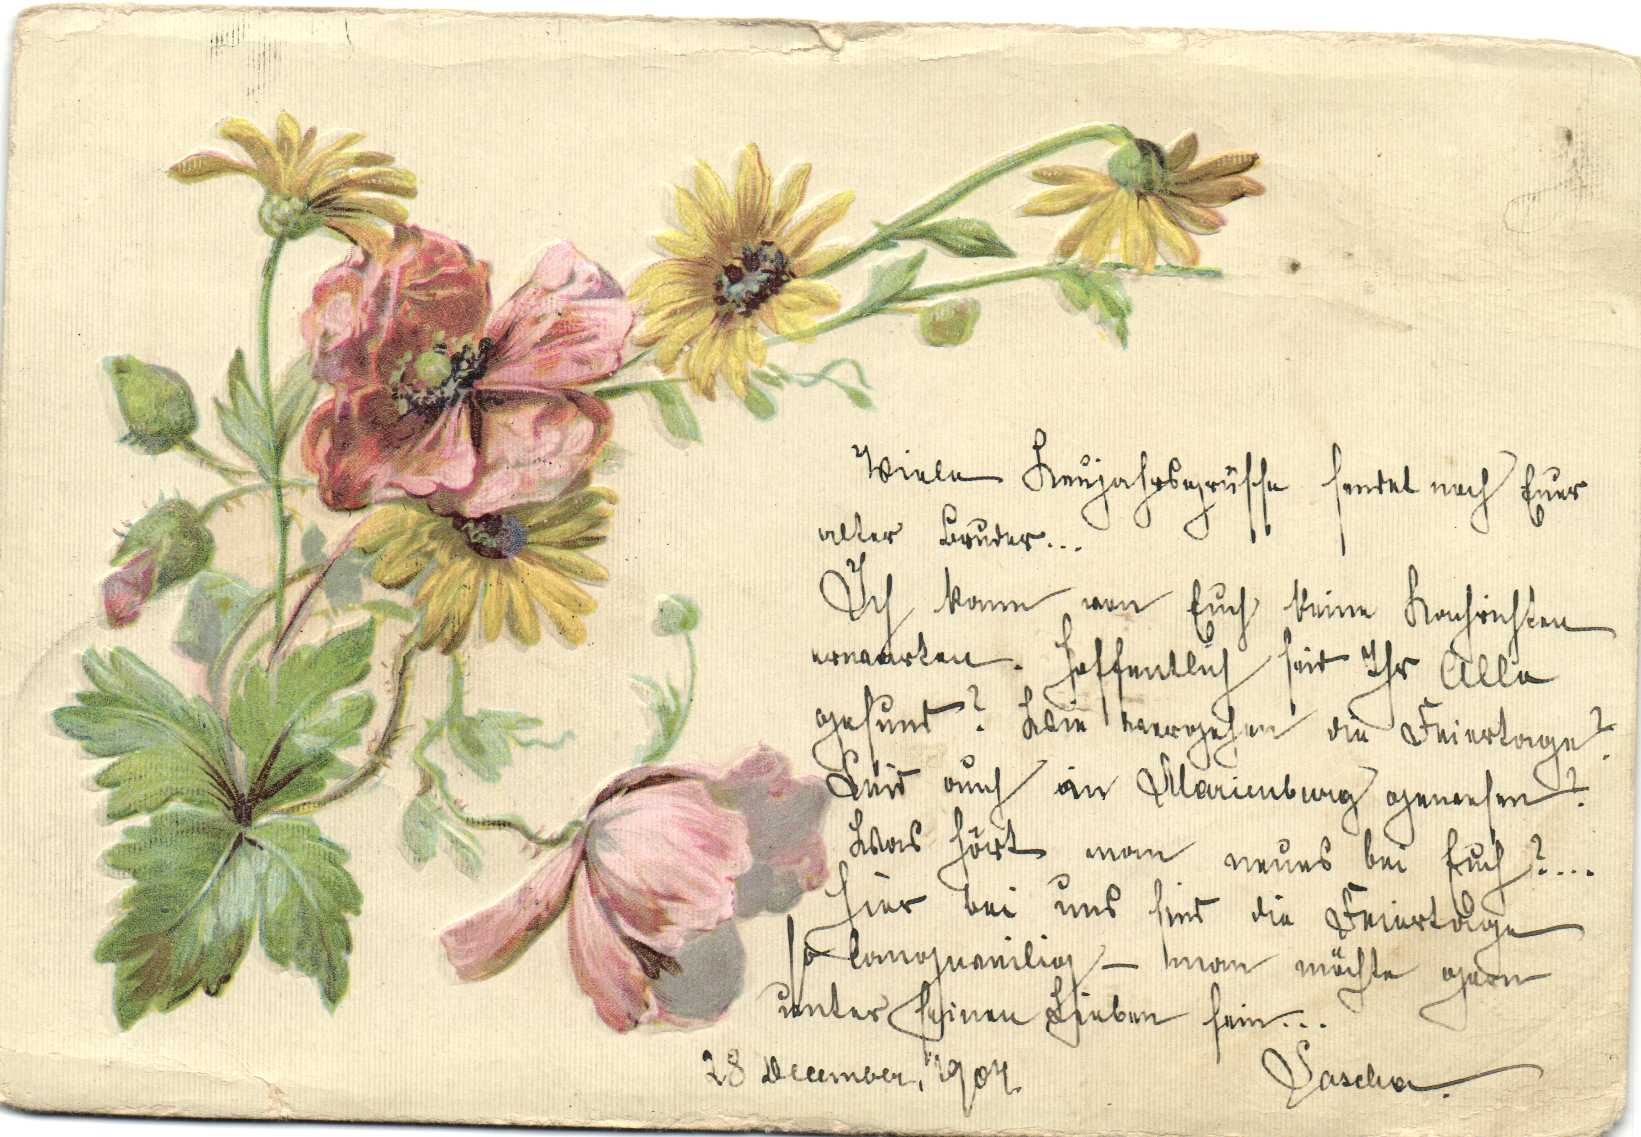 Viele Neujahrsgrüsse sendet noch Euer
alter Bruder...
Ich kann von Euch keine Nachrichten
erwarten. Hoffentlich seid Ihr Alle
gesund? Wie vergehen die Feiertage?
Seid auch in Marienburg gewesen?
Was hört man neues bei Euch?...
Hier bei uns sind die Feiertage
so langweilig – man möchte gern
unter seinen Lieben sein...
28 December, 1904.
Sascha.